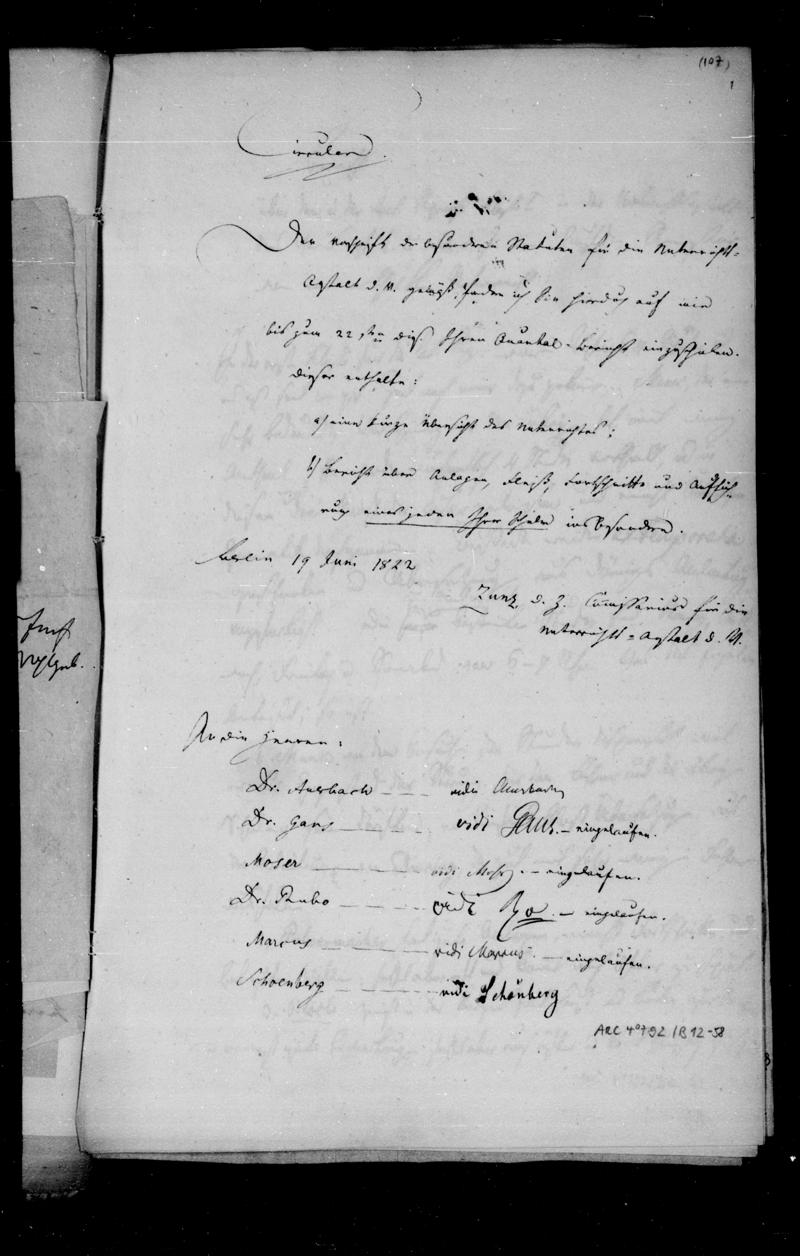 (107)
1
Circulare.
Der Vorschrift der besonderen Statuten für die Unterrichts-
Anstalt d. V. gemäß, fordere ich Sie hierdurch auf mir
bis zum 22sten dies. Ihren Quartal-Bericht einzuschicken.
Dieser enthalte:
a) eine kurze Übersicht des Unterrichtes;
b) Bericht über Anlagen, Fleiß, Fortschritte und Auffüh-
rung eines jeden Ihrer Schüler insbesondere.
Berlin 19 Juni 1822
Zunz, d. Z. Commissarius für die
Unterrichts-Anstalt d. V.
An die Herren:
Dr. Auerbach — vidi Auerbach
Dr. Gans — vidi Gans. — eingelaufen.
Moser — vidi Moser — eingelaufen.
Dr. Rubo — vidi Ro. — eingelaufen.
Marcus — vidi Marcus — eingelaufen.
Schoenberg — vidi Schönberg
ARC 4º792 / B12-58